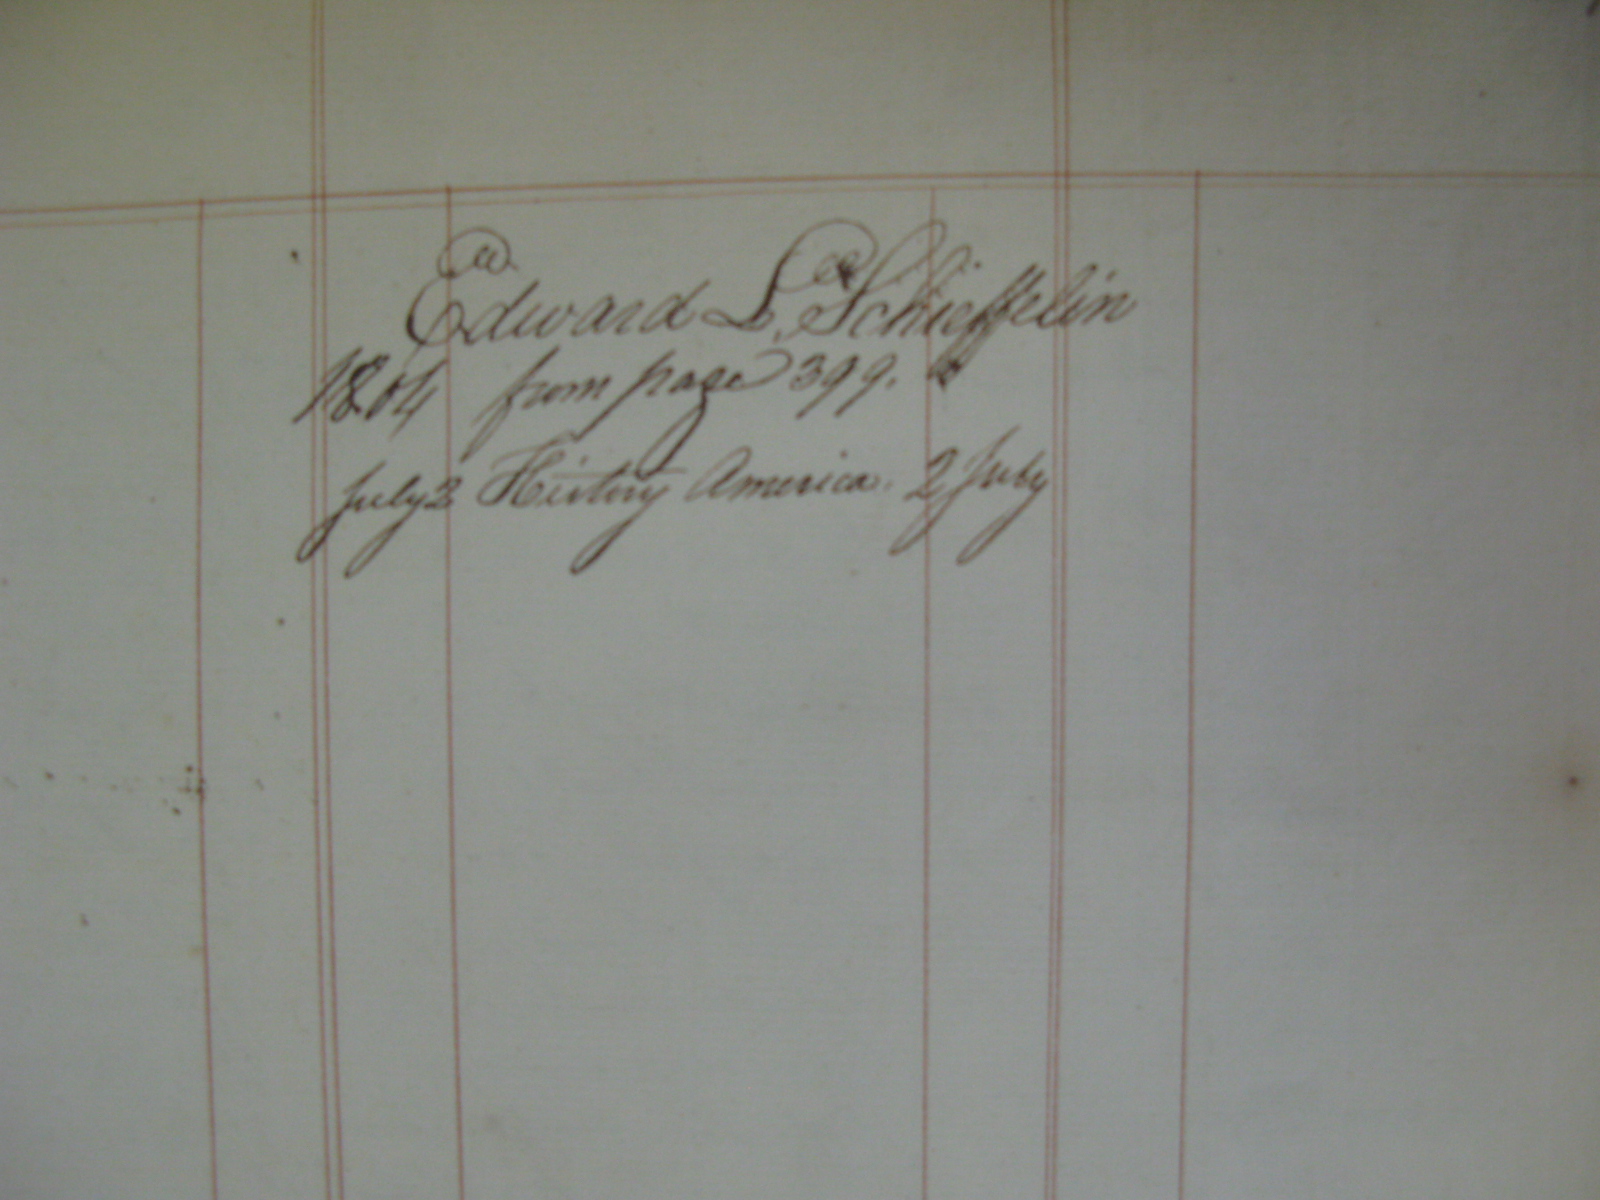 Edward L. Schieffelin
1804 from page 399.
July 2 History America. 2 July